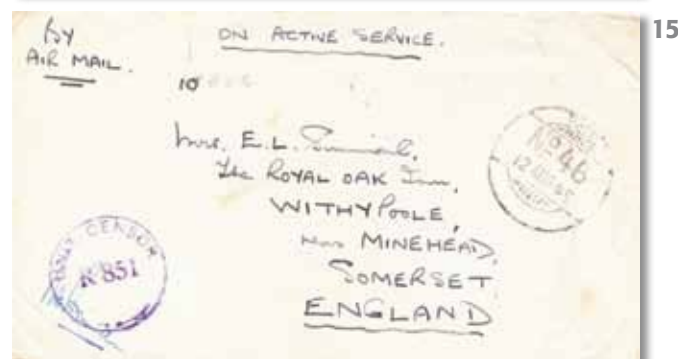 15
by
AIR MAIL.
ON ACTIVE SERVICE.
10
Mrs. E. L.
The ROYAL OAK Inn,
WITHYPOOLE,
Near MINEHEAD,
SOMERSET
ENGLAND
No 46
12
CENSOR
No 851